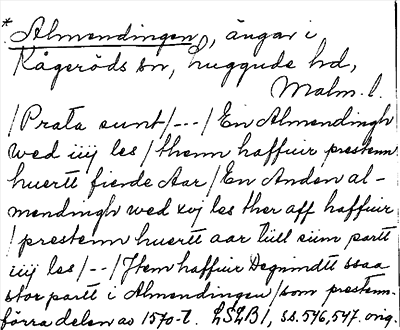 * Almendingen, ängar i
Kågeröds sn, Luggude hd,
Malm. l.
/Prata sunt/---/En Almendingh
wed iiij les/thenn haffuer prestenn
huertt fierde Aar/En Anden al-
mendingh wed xvj les ther aff haffuer
/prestenn huertt aar till siin partt
iiij les/--/Jtem haffuer Degnindtt saa
stor partt i Almendingen/som prestenn.
förra delen av 1570-t. LSLB1, ss. 546, 547. orig.